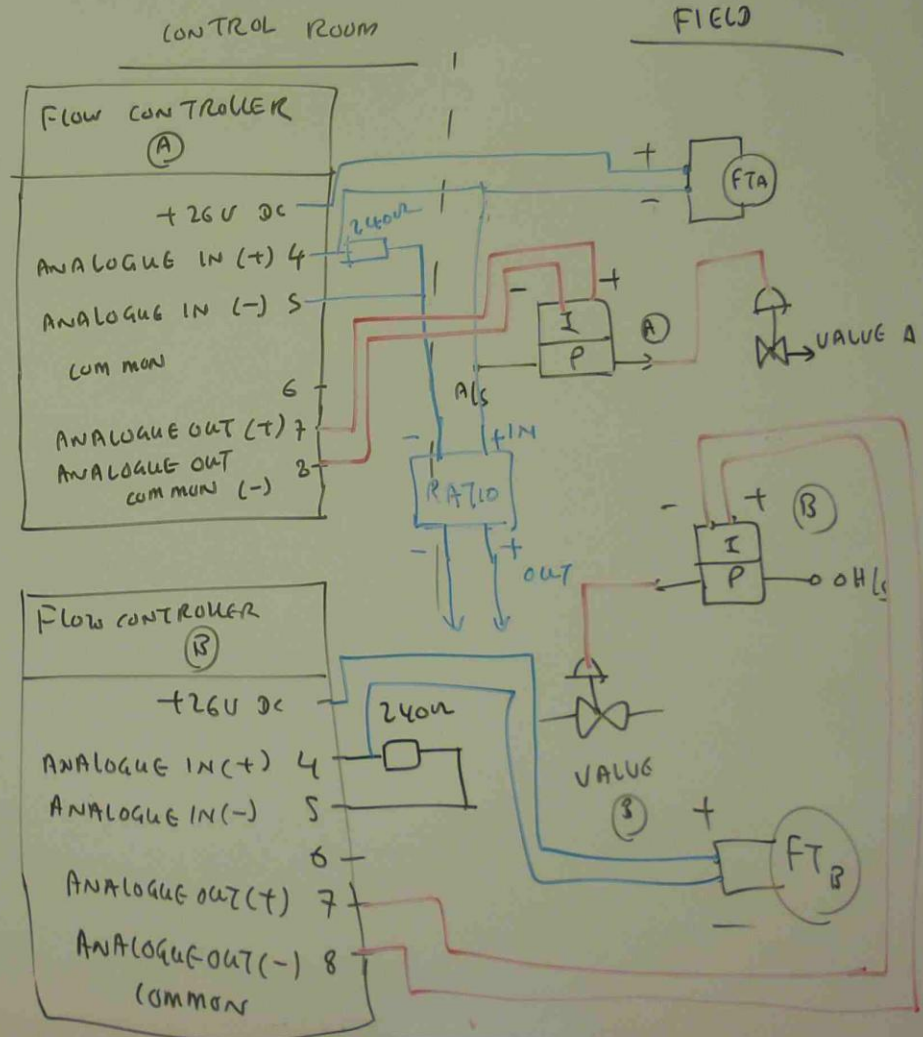 CONTROL ROOM
FIELD
FLOW CONTROLLER
A
+26V DC
ANALOGUE IN (+) 4
240Ω
ANALOGUE IN (-) 5
COMMON
6
ANALOGUE OUT (+) 7
ANALOGUE OUT 8
COMMON (-)
+
-
FTA
- +
I
P
A
VALUE A
A/s
- +IN
RATIO
- +
OUT
- +
B
I
P
FLOW CONTROLLER
B
+26V DC
240Ω
ANALOGUE IN (+) 4
ANALOGUE IN (-) 5
6
ANALOGUE OUT (+) 7
ANALOGUE OUT (-) 8
COMMON
VALUE
+
FTB
-